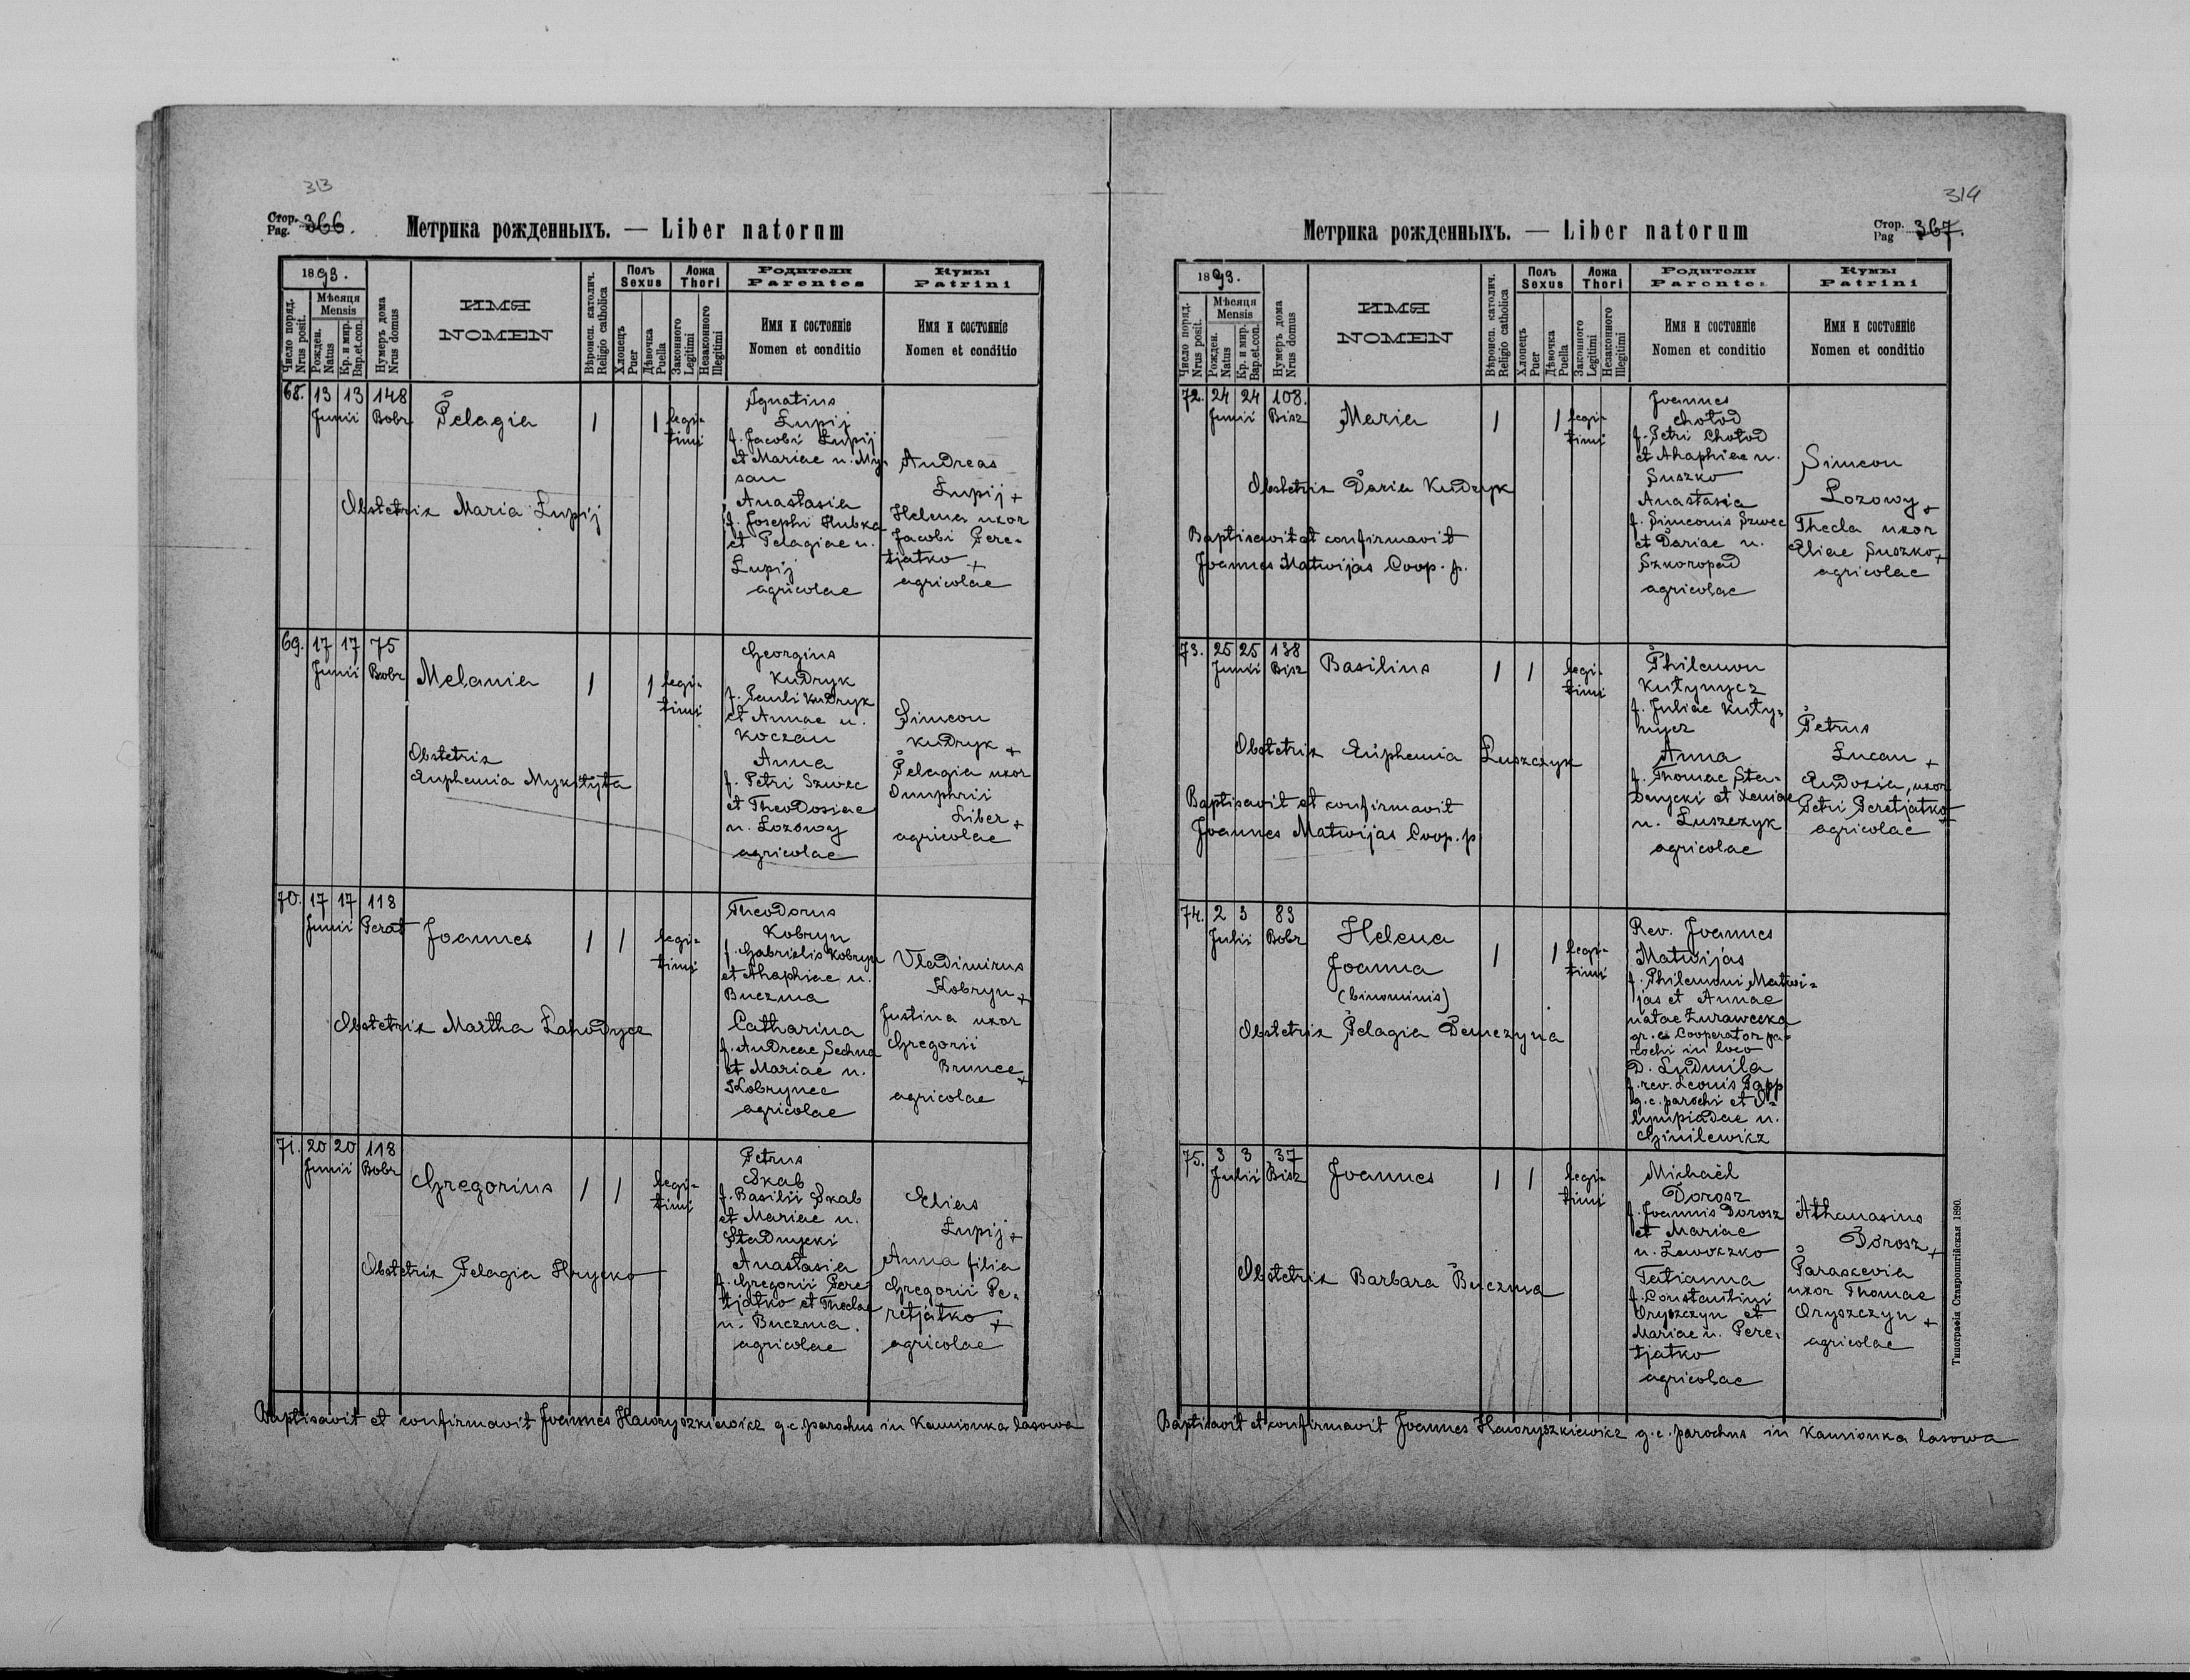 313
Стор.
Pag. 366.
Метрика рожденныхъ. — Liber natorum
1893.
Число поряд.
Nrus posit.
Мѣсяця
Mensis
Рожден.
Natus
Кр. и мир.
Bap. et con.
Нумеръ дома
Nrus domus
ИМЯ
NOMEN
Вѣроисп. католич.
Religio catholica
Полъ
Sexus
Хлопецъ
Puer
Дѣвочка
Puella
Ложа
Thori
Законного
Legitimi
Незаконного
Illegitimi
Родители
Parentes
Имя и состояніе
Nomen et conditio
Кумы
Patrini
Имя и состояніе
Nomen et conditio
68. 13 13 148
Junii Bobr
Pelagia
1 1 legi-
timi
Ignatius
Lupij
f. Jacobi Lupij
et Mariae n. My-
san
Anastasia
f. Josephi Hubka
et Pelagiae n.
Lupij
agricolae
Andreas
Lupij +
Helena uxor
Jacobi Pere-
tjatko +
agricolae
Obstetrix Maria Lupij
69. 17 17 75
Junii Bobr
Melania
1 1 legi-
timi
Georgius
Kudryk
f. Pauli Kudryk
et Annae n.
Koczan
Anna
f. Petri Szwec
et Theodosiae
n. Lozowy
agricolae
Simeon
Kudryk +
Pelagia uxor
Onuphrii
Liber +
agricolae
Obstetrix
Euphemia Mykityta
70. 17 17 118
Junii Perat
Joannes
1 1 legi-
timi
Theodorus
Kobryn
f. Gabrielis Kobryn
et Ahaphiae n.
Buczma
Catharina
f. Andreae Sechna
et Mariae n.
Kobrynec
agricolae
Vladimirus
Kobryn +
Justina uxor
Gregorii
Brunec +
agricolae
Obstetrix Martha Lahodycz
71. 20 20 118
Junii Bobr
Gregorius
1 1 legi-
timi
Petrus
Skab
f. Basilii Skab
et Mariae n.
Stadnycki
Anastasia
f. Gregorii Pere-
tjatko et Theclae
n. Buczma.
agricolae
Elias
Lupij +
Anna filia
Gregorii Pe-
retjatko +
agricolae
Obstetrix Pelagia Hrycko
Baptisavit et confirmavit Joannes Hawryszkiewicz g.c. parochus in Kamionka lasowa
314
Метрика рожденныхъ. — Liber natorum
Стор.
Pag 367.
1893.
Число поряд.
Nrus posit.
Мѣсяця
Mensis
Рожден.
Natus
Кр. и мир.
Bap. et con.
Нумеръ дома
Nrus domus
ИМЯ
NOMEN
Вѣроисп. католич.
Religio catholica
Полъ
Sexus
Хлопецъ
Puer
Дѣвочка
Puella
Ложа
Thori
Законного
Legitimi
Незаконного
Illegitimi
Родители
Parentes
Имя и состояніе
Nomen et conditio
Кумы
Patrini
Имя и состояніе
Nomen et conditio
72. 24 24 108.
Junii Bisz
Maria
1 1 legi-
timi
Joannes
Chotod
f. Petri Chotod
et Ahaphiae n.
Suszko
Anastasia
f. Simeonis Szwec
et Dariae n.
Szkoropad
agricolae
Simeon
Lozowy +
Thecla uxor
Eliae Suszko +
agricolae
Obstetrix Daria Kudryk
Baptisavit et confirmavit
Joannes Matwijas Coop. p.
73. 25 25 138
Junii Bisz
Basilius
1 1 legi-
timi
Philemon
Kutynycz
f. Juliae Kuty-
nycz
Anna
f. Thomae Sta-
dnycki et Xeniae
n. Luszczyk
agricolae
Petrus
Lucan +
Eudoxia, uxor
Petri Peretjatko +
agricolae
Obstetrix Euphemia Luszczyk
Baptisavit et confirmavit
Joannes Matwijas Coop. p
74. 2 3 83
Julii Bobr
Helena
Joanna
(binominis)
1 1 legi-
timi
Rev. Joannes
Matwijas
f. Philemoni Matwi-
jas et Annae
natae Zurawecka
gr. c. Cooperator pa-
rochi in loco
D. Ludmila
f. rev. Leonis Papp
g. c. parochi et O-
lympiadae n.
Chmilewicz
Obstetrix Pelagia Demczyna
75. 3 3 37
Julii Bisz
Joannes
1 1 legi-
timi
Michaël
Dorosz
f. Joannis Dorosz
et Mariae
n. Lewoczko
Tatianna
f. Constantini
Oryszczyn et
Mariae n. Pere-
tjatko
agricolae
Athanasius
Dorosz +
Paraskevia
uxor Thomae
Oryszczyn +
agricolae
Obstetrix Barbara Buczma
Baptisavit et confirmavit Joannes Hawryszkiewicz g.c. parochus in Kamionka lasowa
Типографія Ставропигійская 1890.